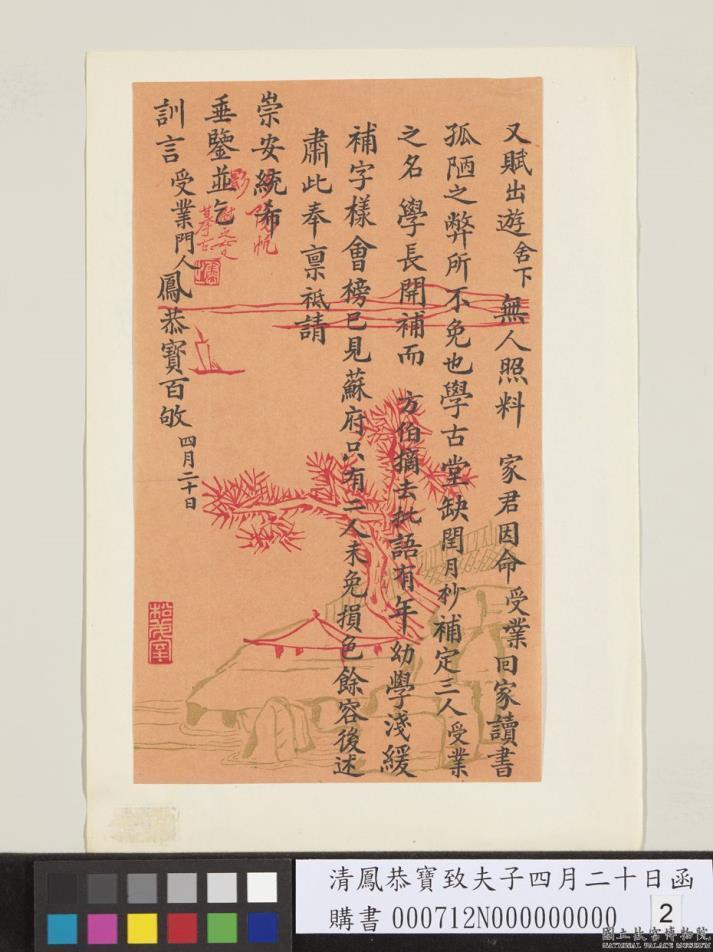 又賦出遊舍下無人照料 家君因命受業回家讀書
孤陋之弊所不免也學古堂缺閏月杪補定三人受業
之名 學長開補而 方伯摘去批語有年幼學淺緩
補字樣會榜已見蘇府只有二人未免損色餘容後述
肅此奉稟祗請
崇安統希
垂鑒並乞
訓言 受業門人鳳恭寶百敂 四月二十日
清鳳恭寶致夫子四月二十日函
購書000712N000000000
2
國立故宮博物院
NATIONAL PALACE MUSEUM